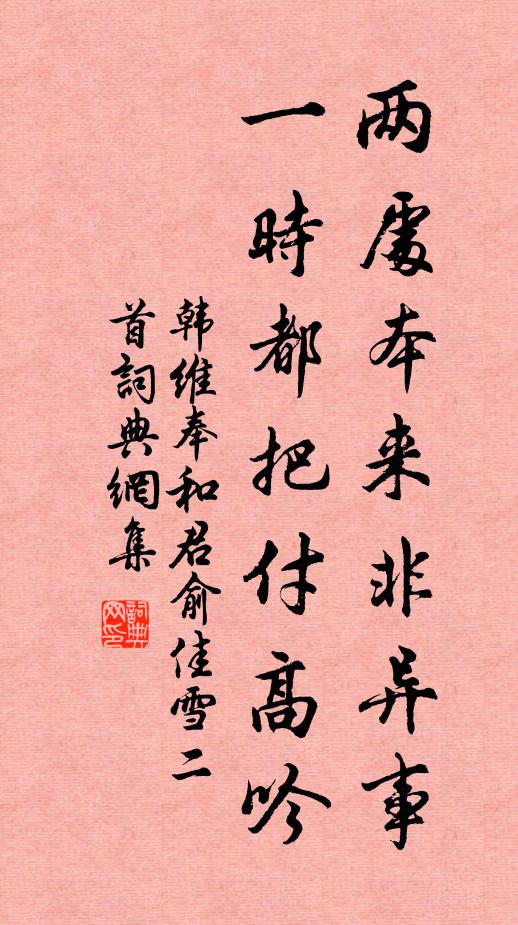 两處本来非异事
一時都把付高吟
韩維奉和君俞佳雪二
首詞典網集
詞典
网印